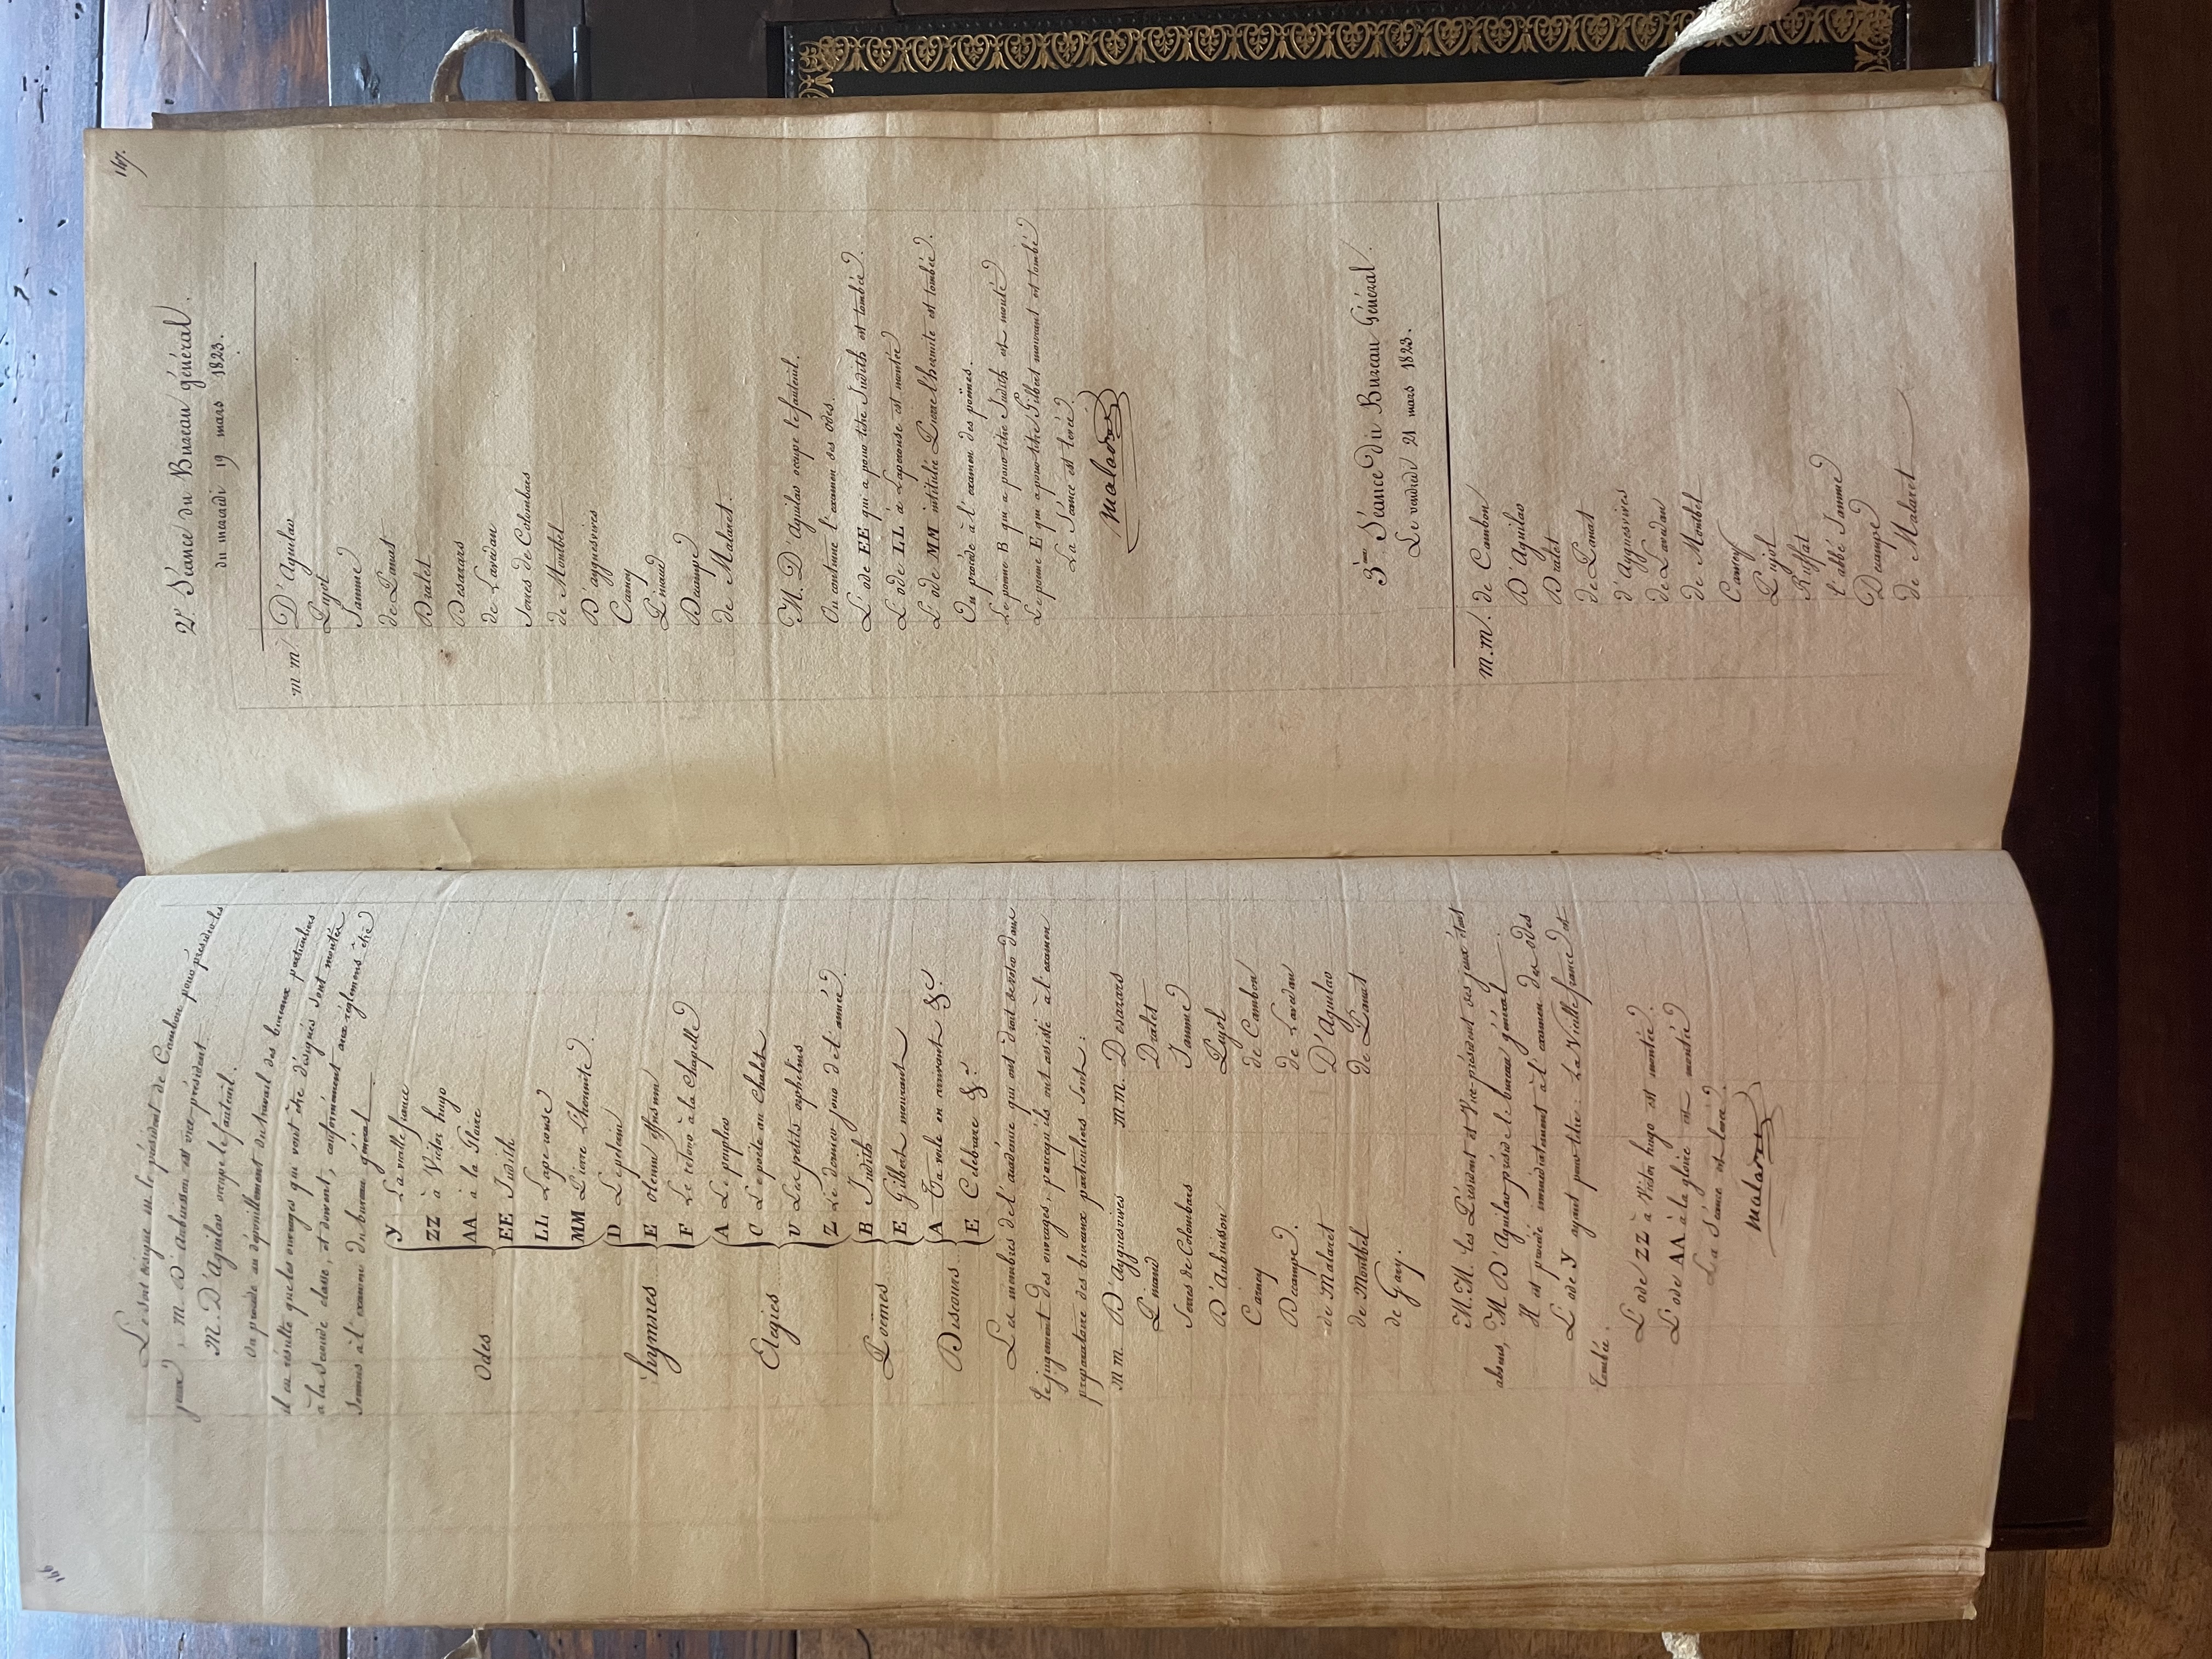 166
Le sort désigne m. le président de Cambon pour présider les
jeux, M. D'Aubuisson est vice-président.
M. D'Aguilar occupe le fauteuil.
On procède au dépouillement du travail des bureaux particuliers
il en résulte que les ouvrages qui vont être désignés sont montés
à la seconde classe, et doivent, conformément aux réglemens être
soumis à l'examen du bureau général.
Odes
Y La vieille france
ZZ à Victor hugo
AA à la Gloire
EE Judith
LL Laperouse
MM Pierre L'hermite.
hymnes
D Le pelerin
E
F Le retour à la Chapelle
Elegies
A Le peuplier
C Le poëte au Chalet
U Les petits orphelins
Z Le dernier jour de l'année.
Poëmes
B Judith
E Gilbert mourant
Discours
A Ta mele en servant &c
E Celebrare &c
Les membres de l'académie qui ont droit de voter dans
le jugement des ouvrages, parcequ'ils ont assisté à l'examen
préparatoire des bureaux particuliers sont:
m m. D'Ayguesvives m.m. Desazars
Pinaud Dralet
Serres de Colombars Jamme
D'Aubuisson Pujol
Carney de Cambon
Decampe. de Lavedan
de Malaret D'Aguilar
de Montbel de Panat
de Gary.
M.M. les Président et Vice-président des jeux étant
absens, M. D'Aguilar préside le bureau général.
Il est procédé immédiatement à l'examen des odes
L'ode Y ayant pour titre: La Vieille france est
tombée.
L'ode ZZ à Victor hugo est montée.
L'ode AA à la gloire est montée
La Séance est levée.
Malaret
167.
2e. Séance du Bureau général.
du mercredi 19 mars 1823.
m.m. D'Aguilar
Pujol
Jamme
de Panat
Dralet
Desazars
de Lavedan
Serres de Colombars
de Montbel
D'ayguesvives
Carney
Pinaud
Decampe
de Malaret.
M. D'Aguilar occupe le fauteuil.
On continue l'examen des odes.
L'ode EE qui a pour titre Judith est tombée.
L'ode LL à Laperouse est montée
L'ode MM intitulée Pierre l'hermite est tombée.
On procède à l'examen des poëmes.
Le poëme B qui a pour titre Judith est monté
Le poëme E qui a pour titre Gilbert mourant est tombé
La Séance est levée.
Malaret
3me. Séance du Bureau Général.
Le vendredi 21 mars 1823.
m.m. de Cambon
D'Aguilar
Dralet
de Panat
d'Ayguesvives
de Lavedan
de Montbel
Carney
Pujol
Ruffat
l'abbé Jamme
Decampe
de Malaret